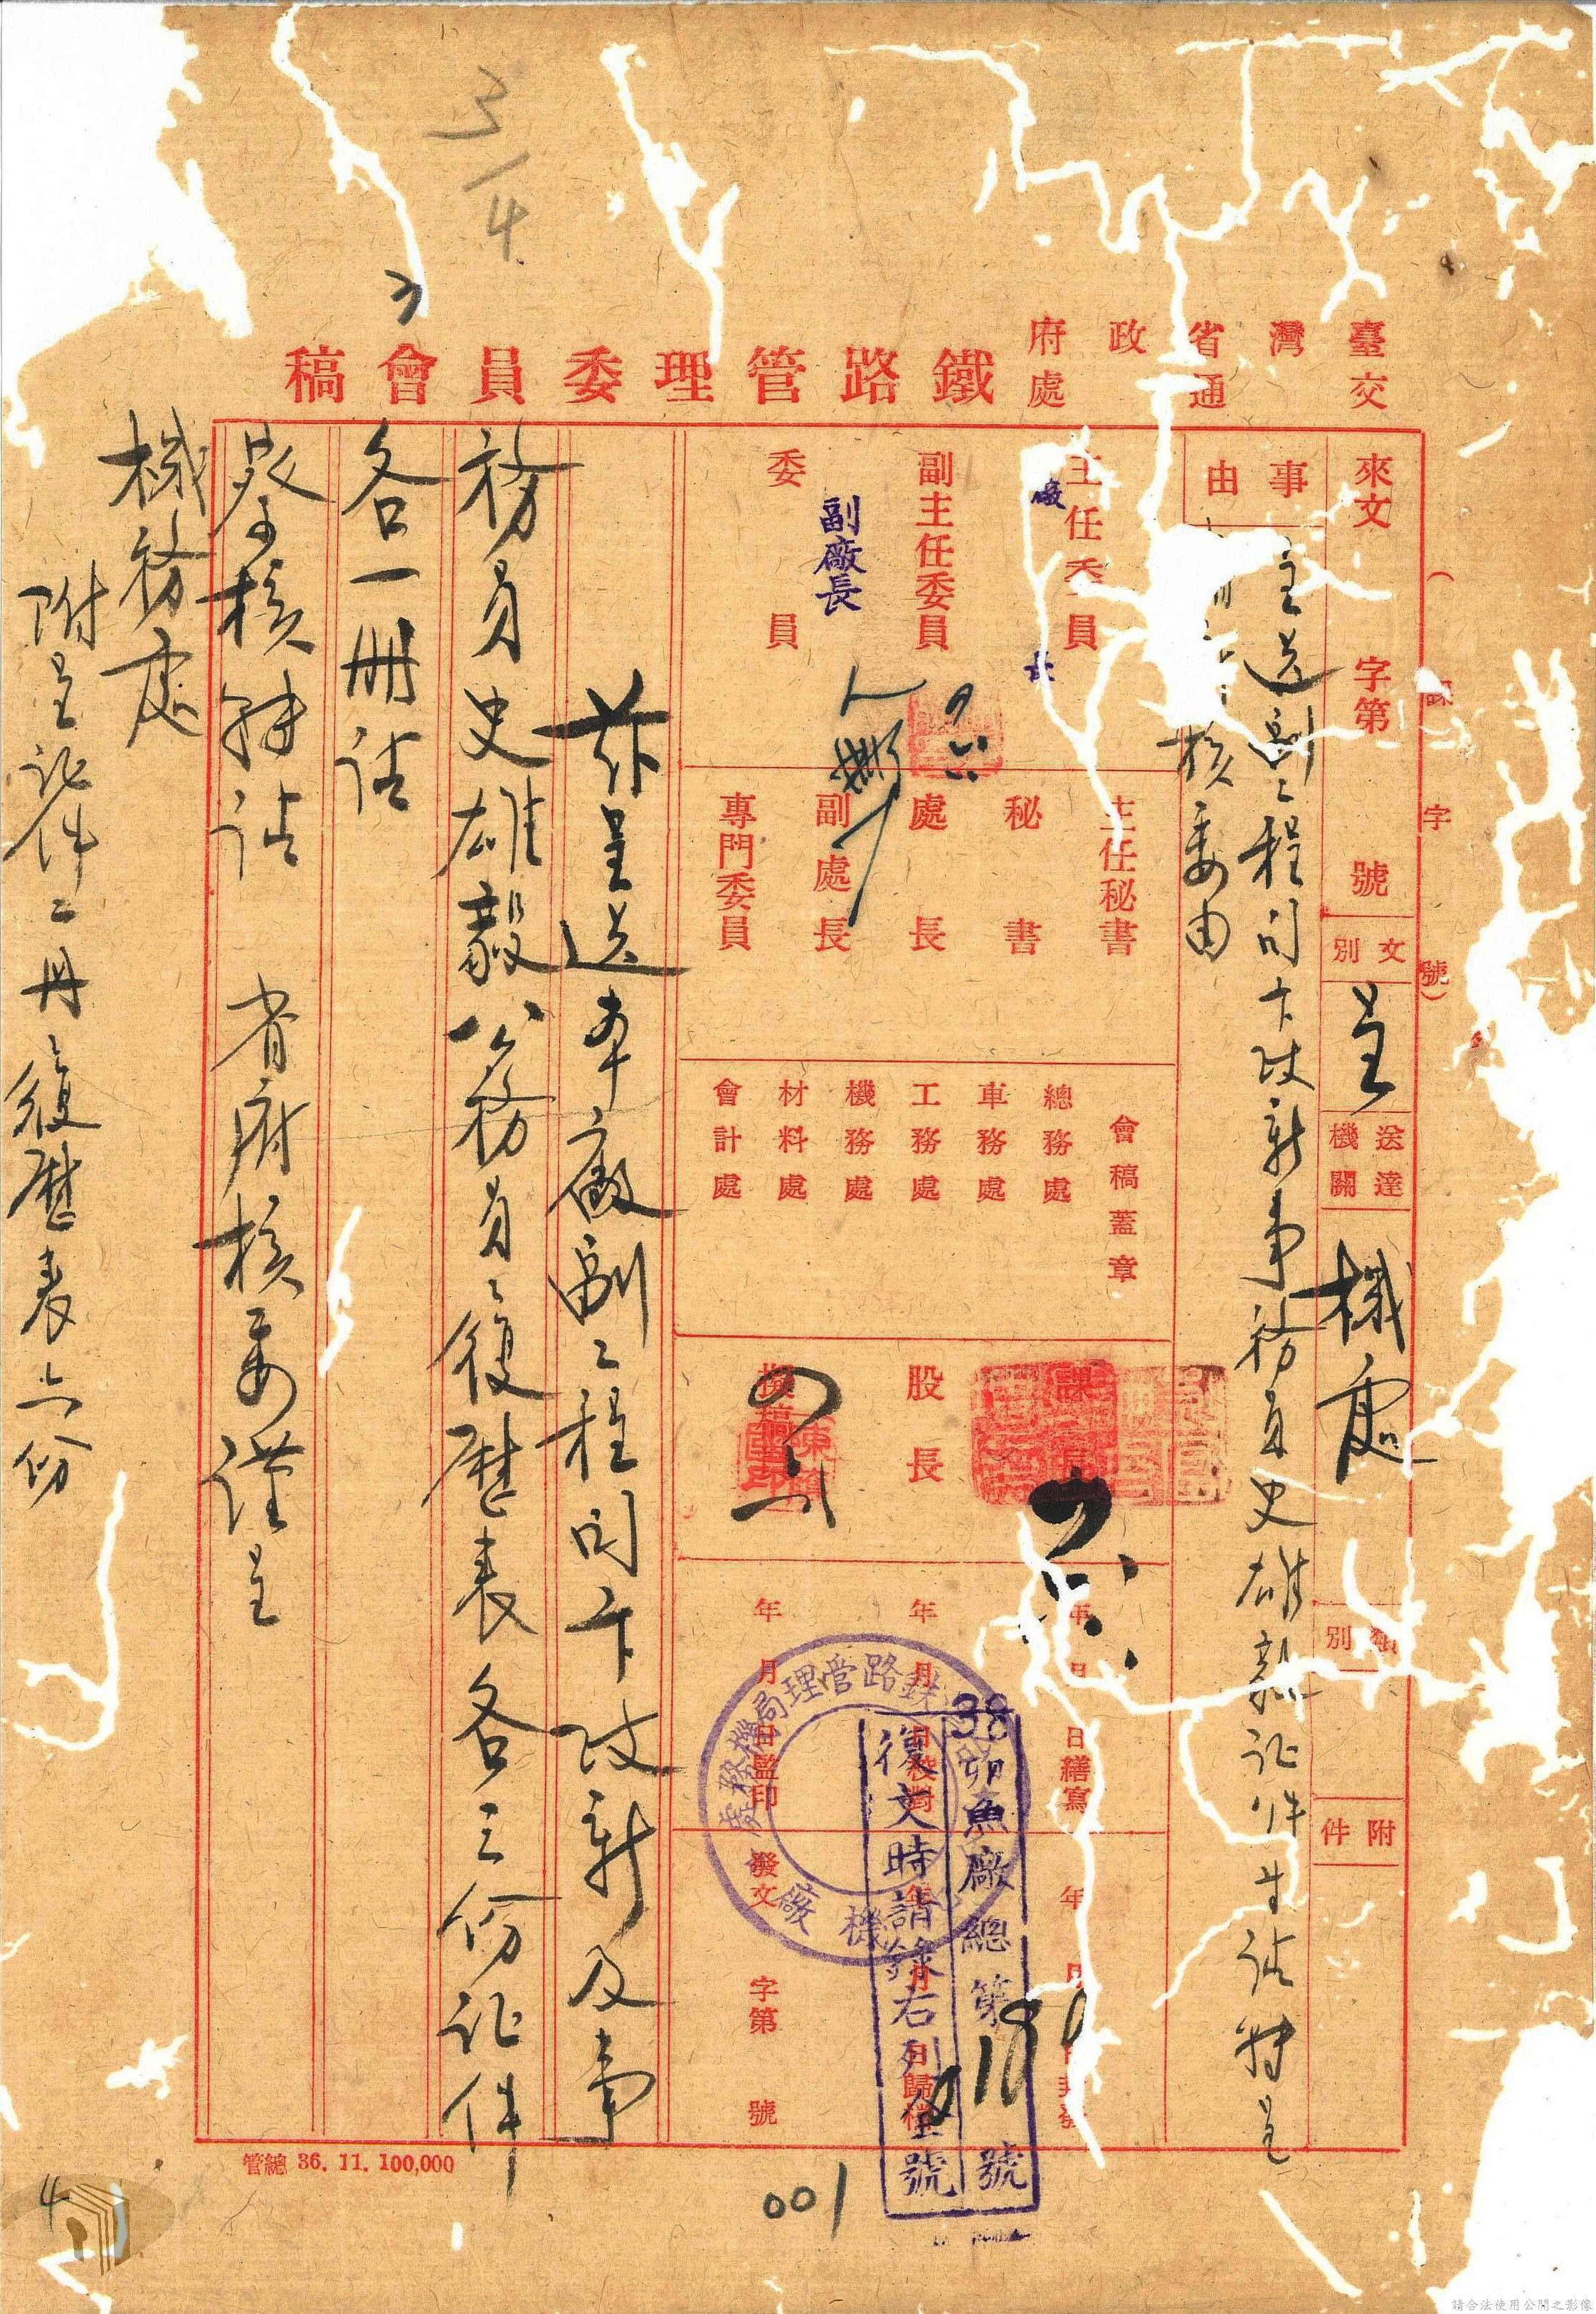 3/4
臺灣省政府
交通處
鐵路管理委員會稿
（課字號）
來文 字第 號
文別 呈
送達機關 機處
類別
附件
事由
呈送副工程司卞攻新事務員史雄毅証件 請特呈
核委由
主任委員
廠長
副主任委員
委員
副廠長
主任秘書
秘書
處長
副處長
專門委員
會稿蓋章
總務處
車務處
工務處
機務處
材料處
會計處
課長
股長
擬稿
年 月 日繕寫
年 月 日校對
年 月 日監印
年 月 日封發
年 月 日歸檔
發文 字第 號
鐵路管理局機務處
機廠
38卯魚廠總第 號
復文時請錄右列全號
茲呈送本廠副工程司卞攻新及事
務員史雄毅公務員履歷表各三份証件
各一冊請
鑒核轉請 省府核委謹呈
機務處
附呈証件二冊履歷表六份
管總 36. 11. 100,000
001
4
請合法使用公開之影像